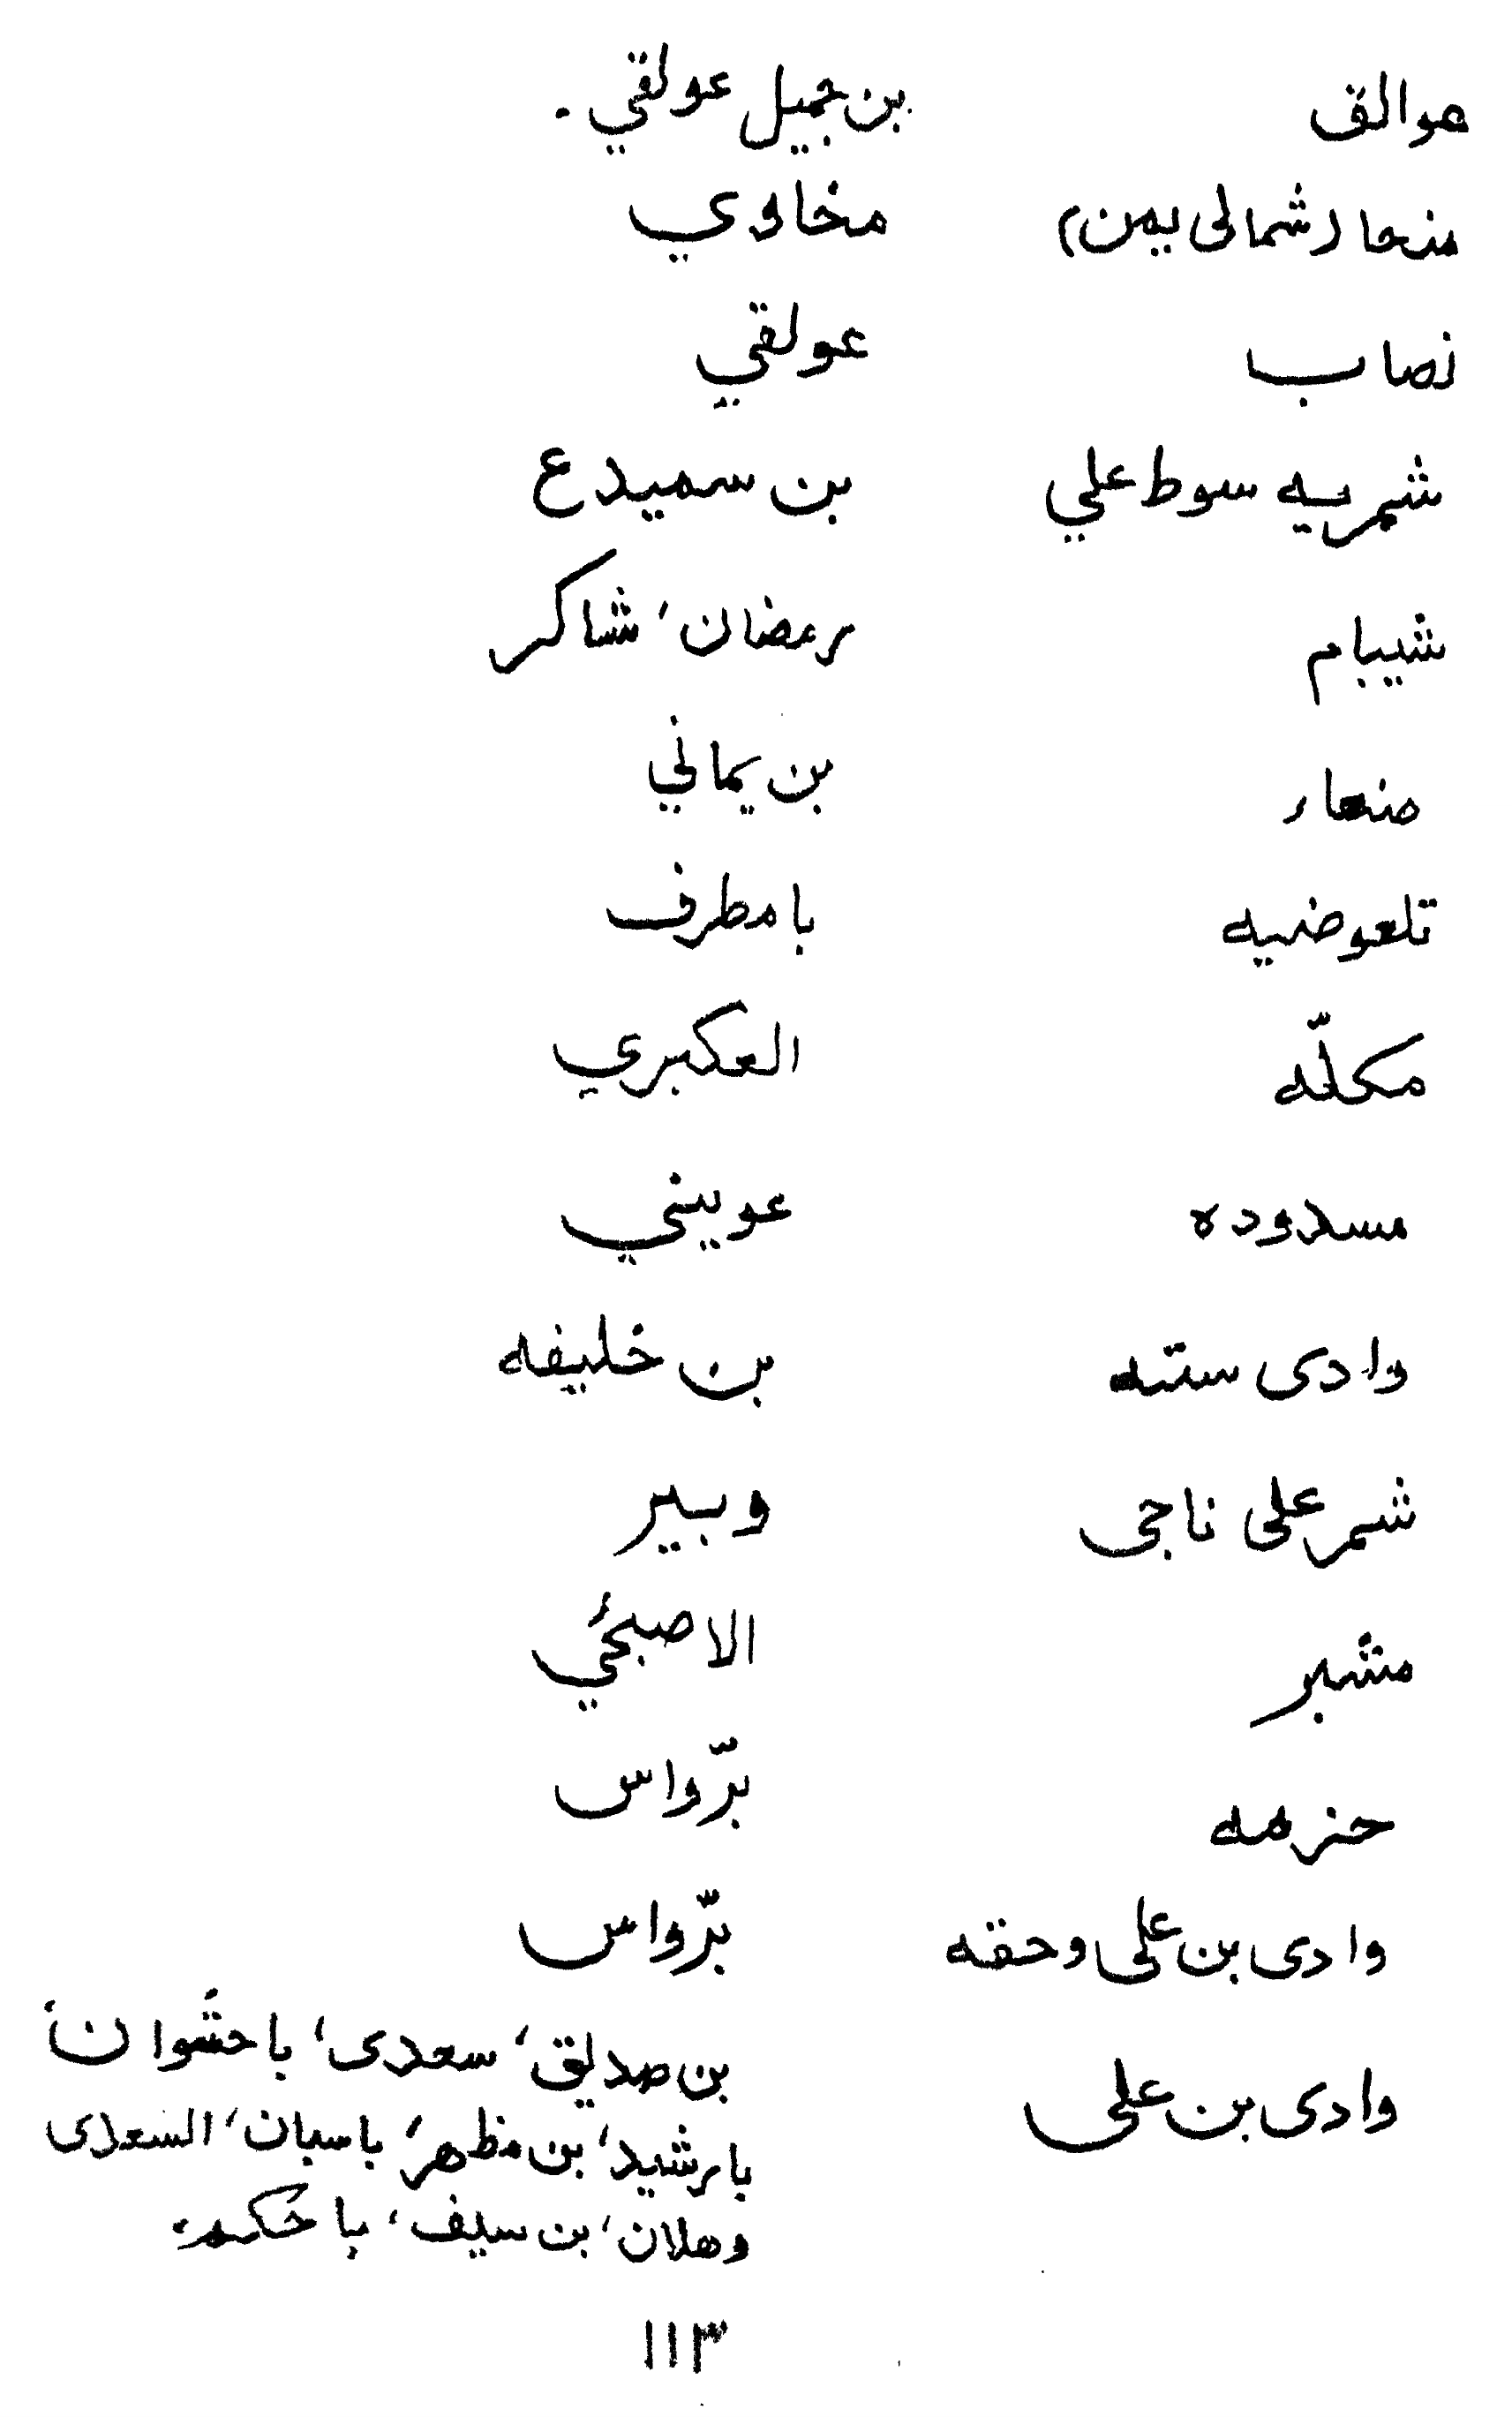 هوالق بن جميل عولقي ۔
منحا (شمالی یمن) مخاوي
نصاب عولقي
شمريه سوط علي بن سميدع
شيبام رمضان، شاكر
صنعاء بن يماني
تلعوضيه بامطرف
مكلّه العكبري
مسدوده عويني
وادی ستنه بن خليفه
شمر علی ناجی وبير
مشبر الاصبحي
حزمه برّواس
وادی بن علی وحقه برّواس
وادی بن علی بن صديق، سعدی، باحشوان،
بارشيد، بن مظهر، باسبان، السعدی
وهلان، بن سيف، باحكم۔
۱۱۳